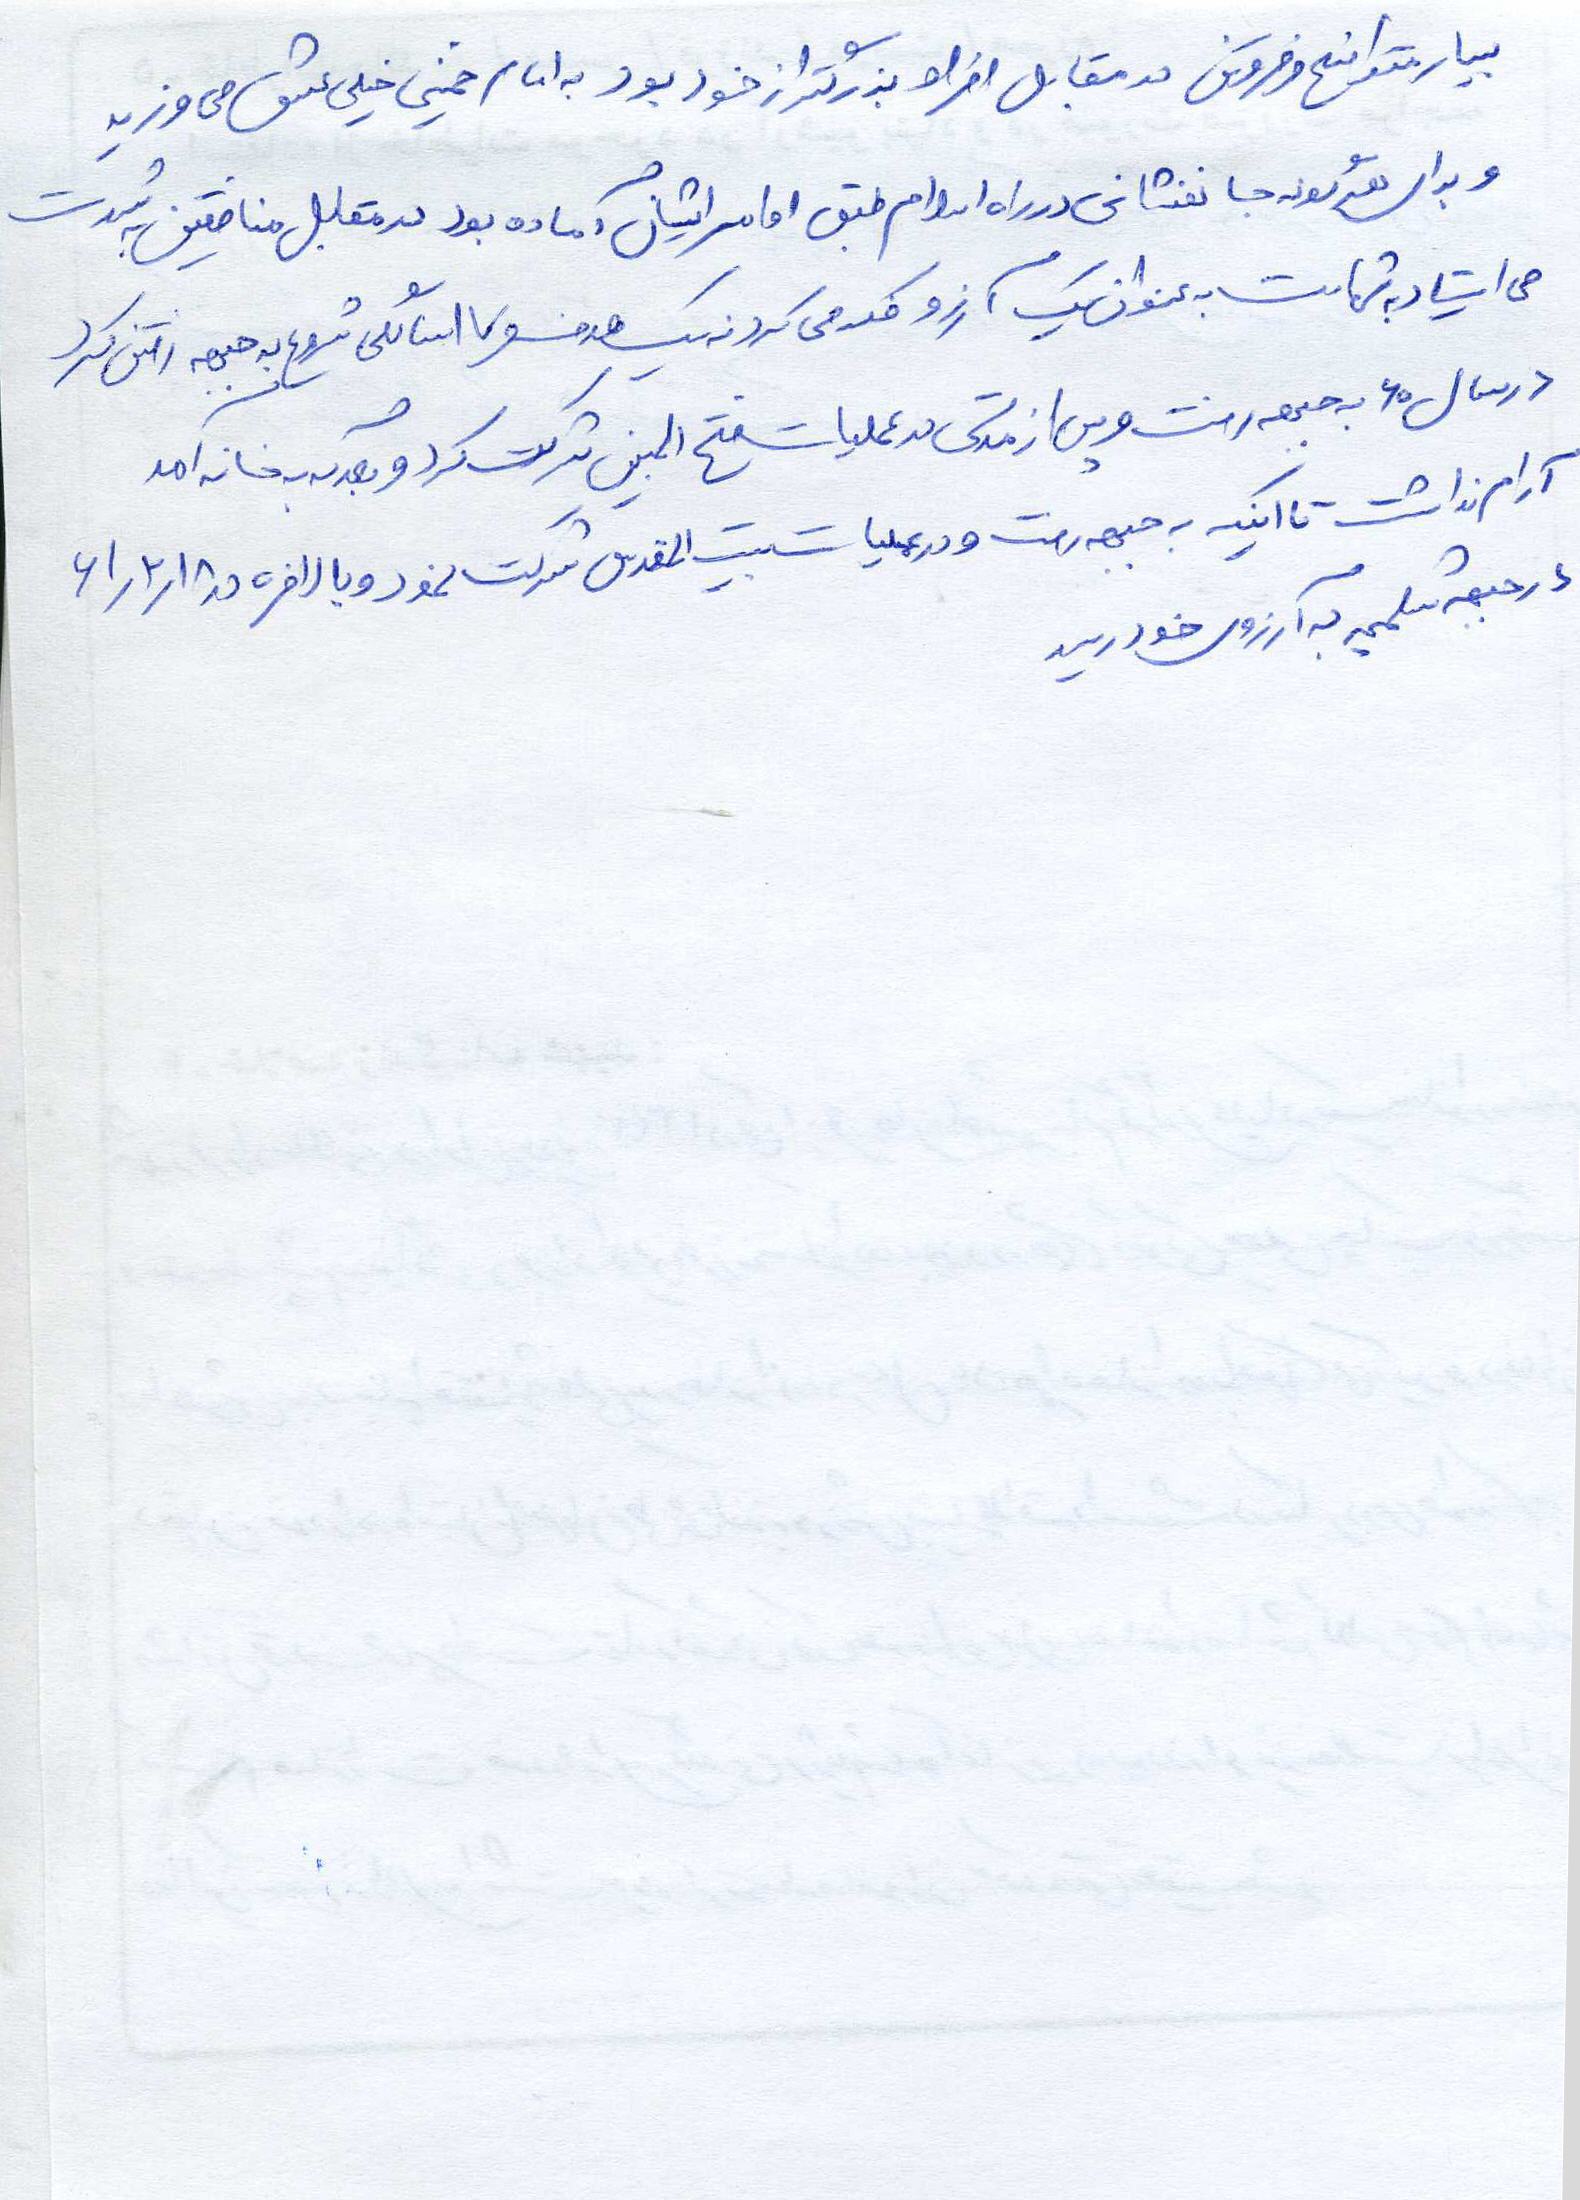 بسیار متواضع و فروتن در مقابل افراد بزرگتر از خود بود به امام خمینی خیلی عشق می ورزید
و برای هرگونه جانفشانی در راه اسلام طبق اوامر ایشان آماده بود در مقابل منافقین به شدت
می ایستاد به شهادت به عنوان یک آرزو فکر می کرد نه یک هدف و از سالگی شروع به جبهه رفتن کرد
در سال ۶۰ به جبهه رفت و پس از مدتی در عملیات فتح المبین شرکت کرد و بعد که به خانه آمد
آرام نداشت تا اینکه به جبهه رفت و در عملیات بیت المقدس شرکت نمود و بالاخره در ۶۱/۲/۱۸
در جبهه شلمچه به آرزوی خود رسید